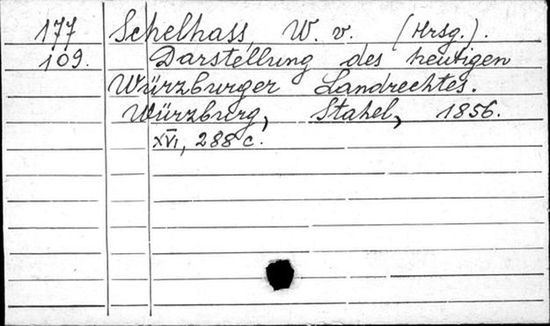 177 Schelhass, W. v. (Hrsg.).
109. Darstellung des heutigen
Würzburger Landrechtes.
Würzburg, Stahel, 1856.
XVI, 288 c.